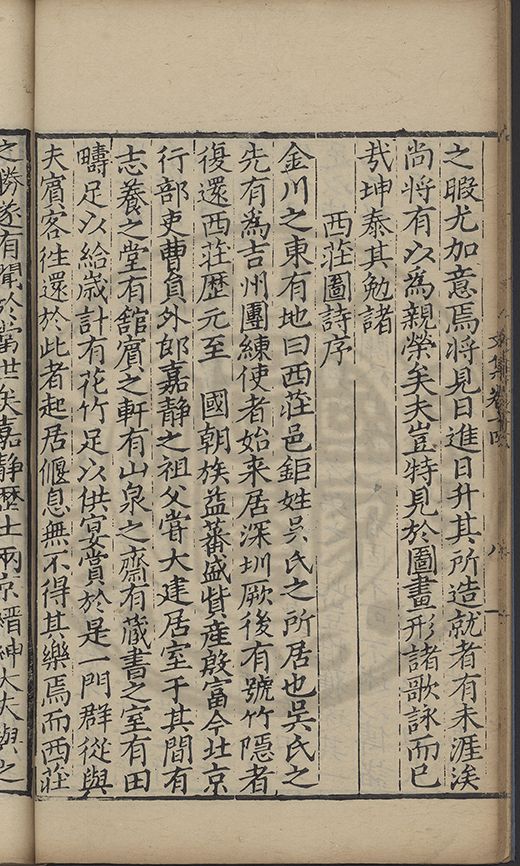 之暇尤加意焉將見日進日升其所造就者有未涯涘
尚將有以為親榮矣夫豈特見於圖畫形諸歌詠而已
㢤坤泰其勉諸
西莊圖詩序
金川之東有地曰西莊邑鉅姓吳氏之所居也吳氏之
先有為吉州團練使者始来居深圳厥後有號竹隱者
復還西莊歴元至 國朝族益蕃盛貲産殷富今北京
行部吏曹負外郎嘉靜之祖父甞大建居室于其間有
志養之堂有舘賓之軒有山泉之齋有蔵書之室有田
疇足以給歳計有花竹足以供宴賞於是一門群從與
夫賓客徃還於此者起居偃息無不得其樂焉而西莊
之勝遂有聞於當世矣嘉靜歴士兩京縉紳大夫與之
文集卷四
八